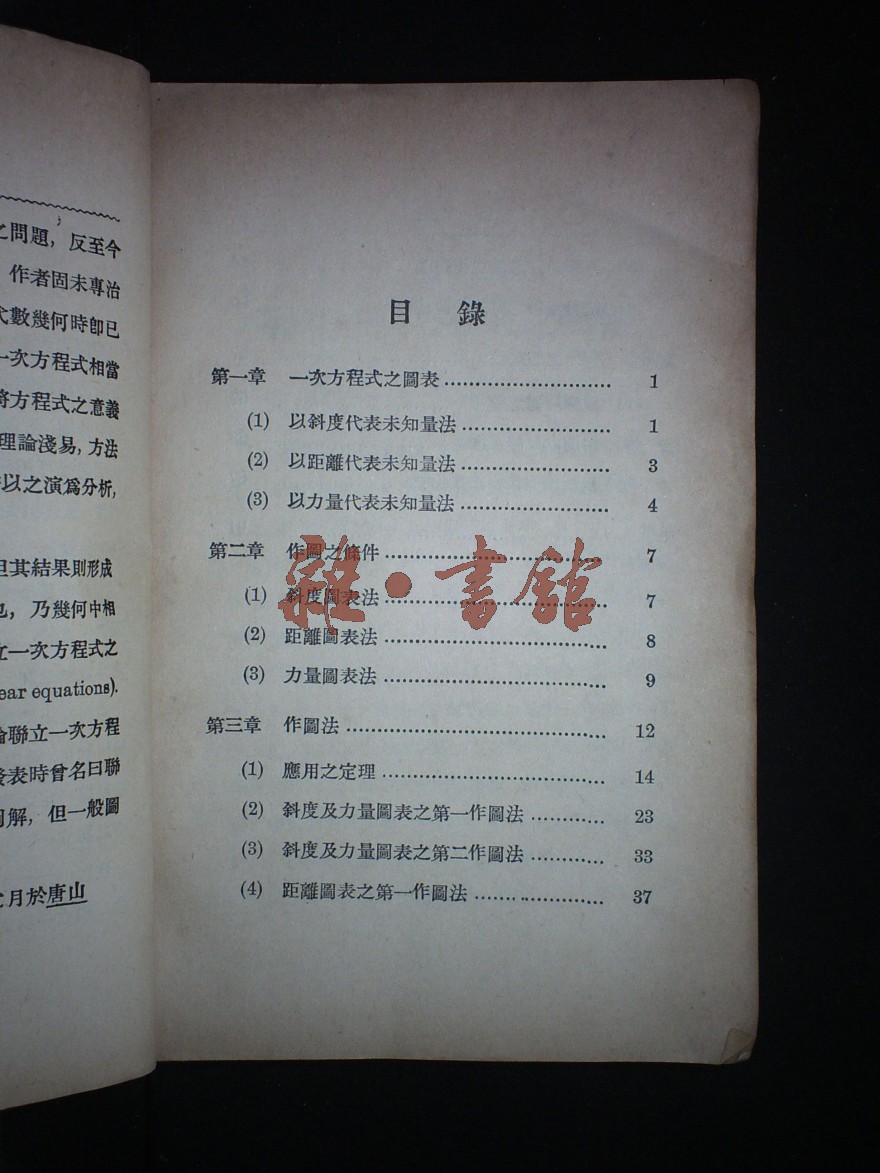 之問題，反至今
作者固未專治
代數幾何時卽已
一次方程式相當
將方程式之意義
理論淺易，方法
以之演爲分析，
但其結果則形成
也，乃幾何中相
立一次方程式之
ear equations).
論聯立一次方程
發表時曾名曰聯
圖解，但一般圖
月於唐山
目錄
第一章 一次方程式之圖表 1
(1) 以斜度代表未知量法 1
(2) 以距離代表未知量法 3
(3) 以力量代表未知量法 4
第二章 作圖之條件 7
(1) 斜度圖表法 7
(2) 距離圖表法 8
(3) 力量圖表法 9
第三章 作圖法 12
(1) 應用之定理 14
(2) 斜度及力量圖表之第一作圖法 23
(3) 斜度及力量圖表之第二作圖法 33
(4) 距離圖表之第一作圖法 37
雜·書館